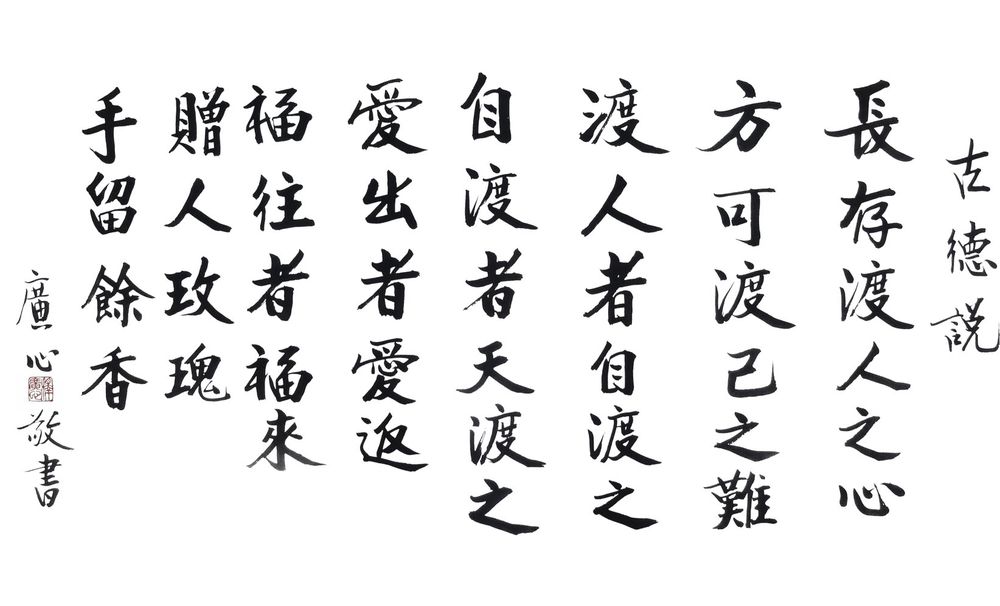 古德説
長存渡人之心
方可渡己之難
渡人者自渡之
自渡者天渡之
愛出者愛返
福往者福來
贈人玫瑰
手留餘香
廣心敬書